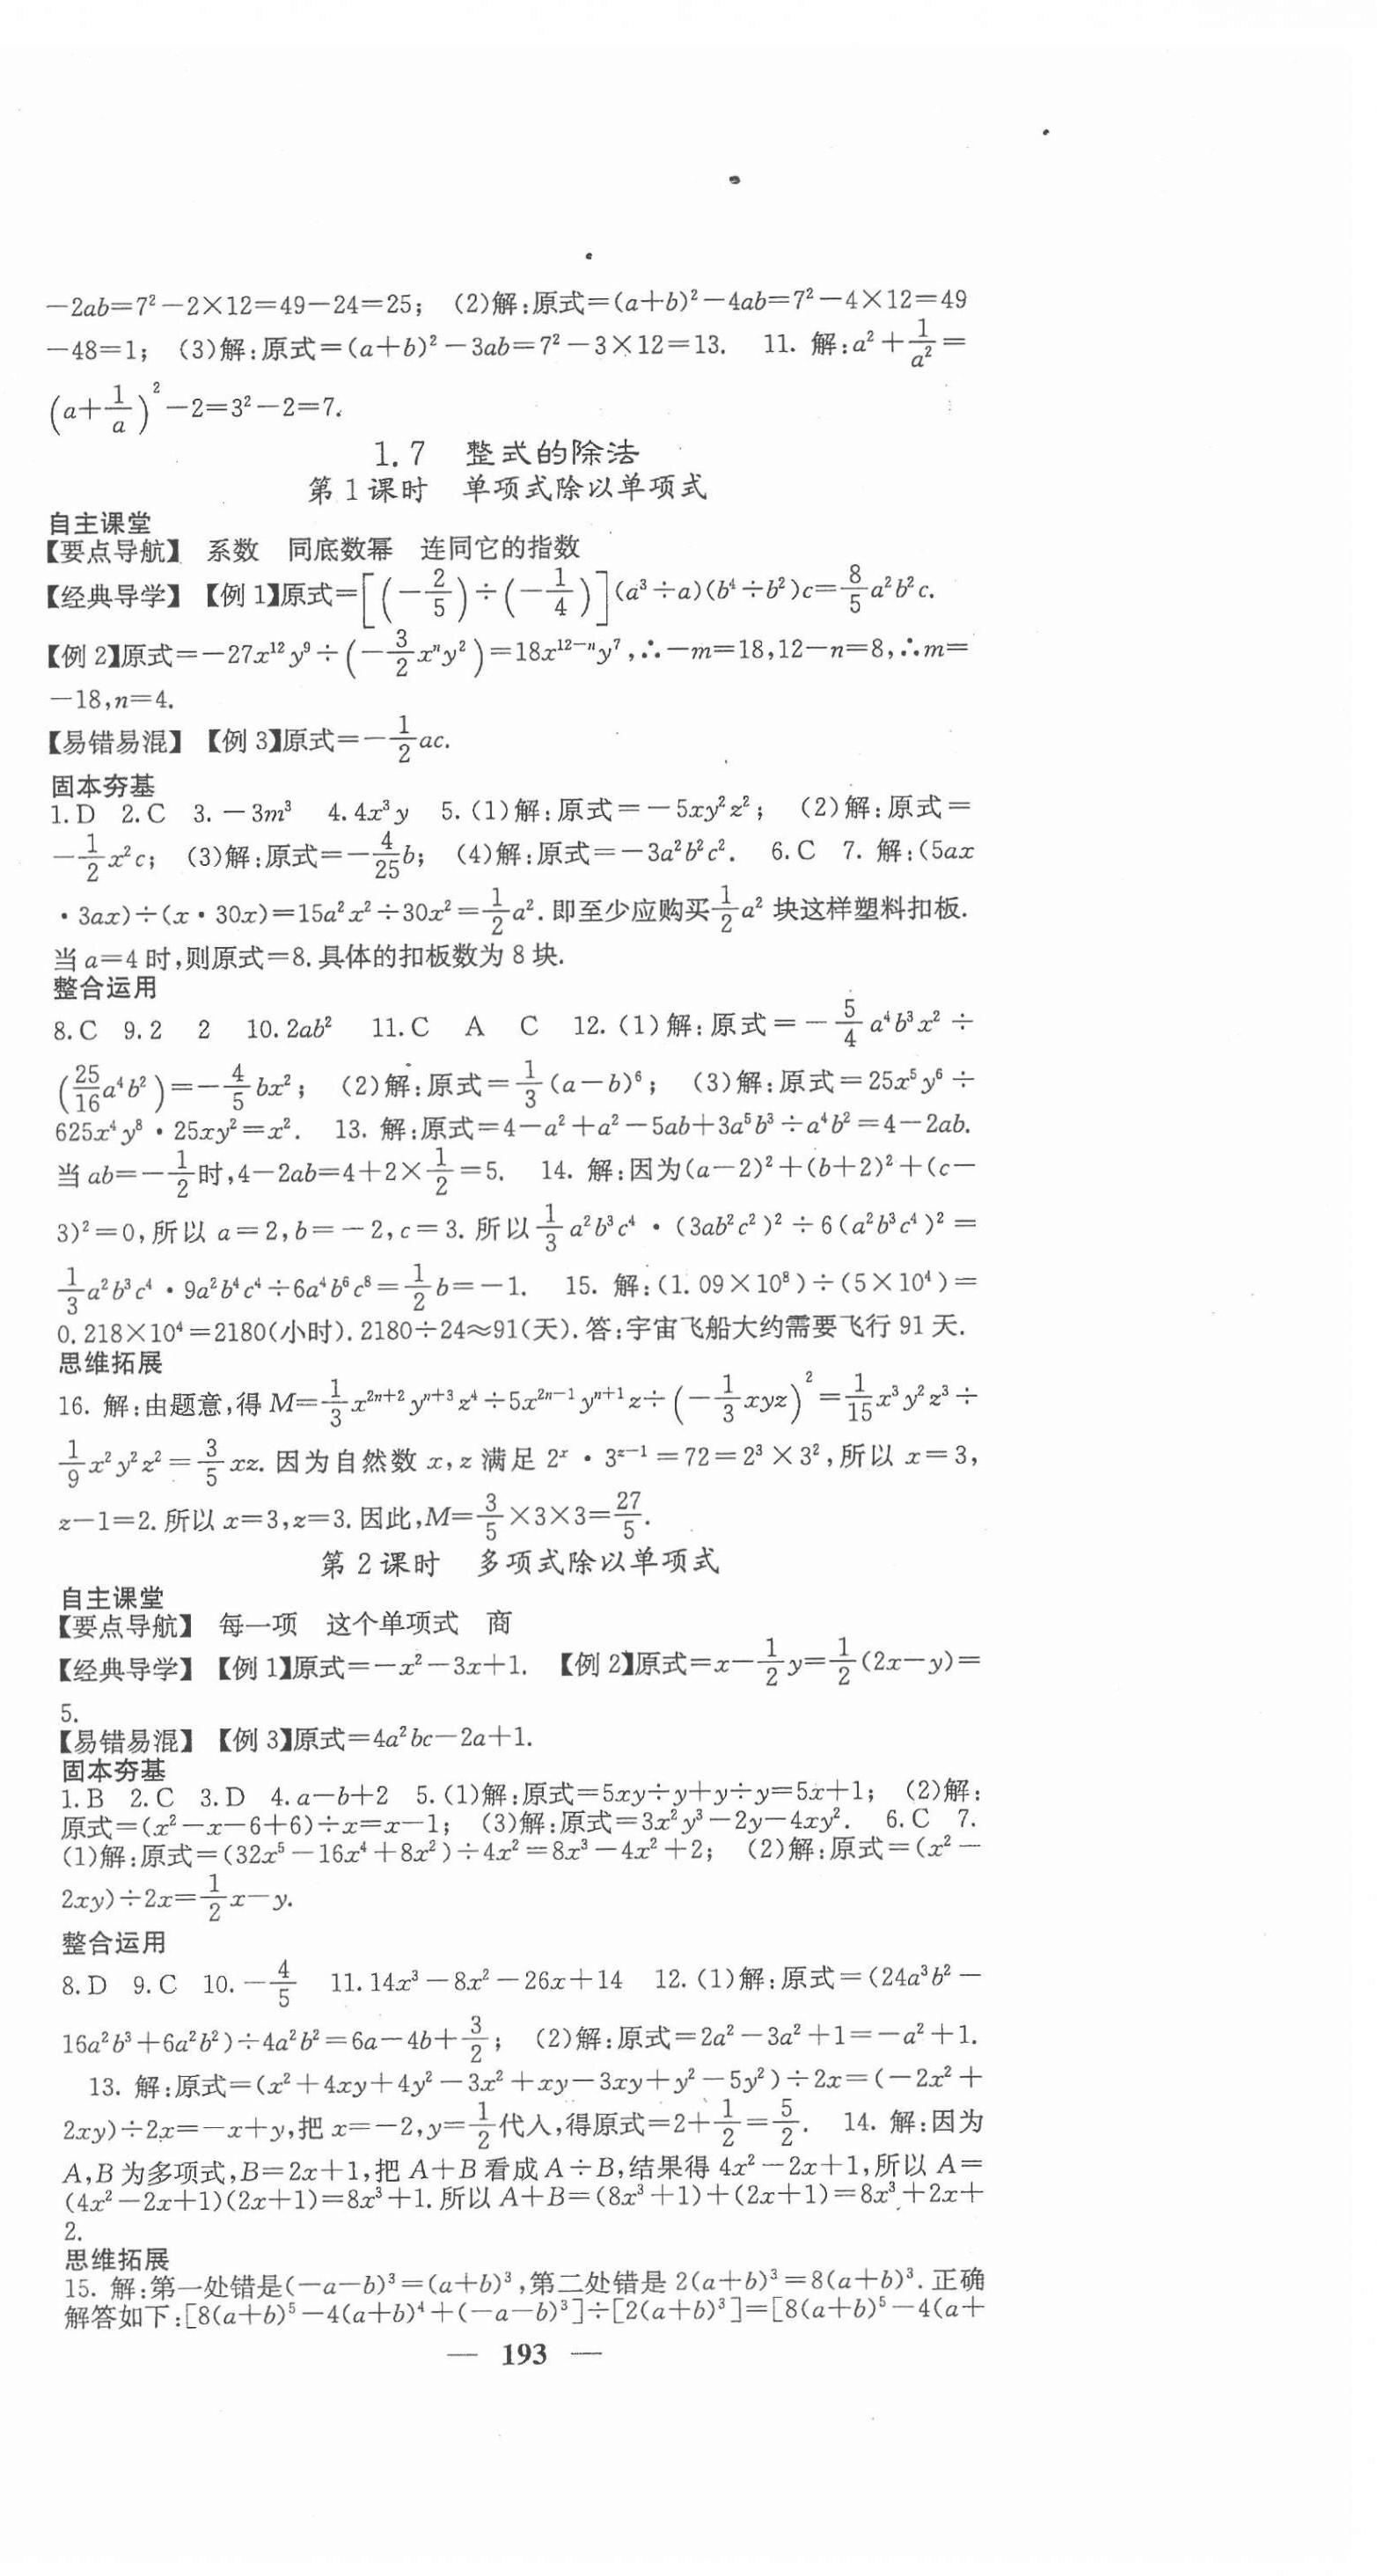 －2ab＝7²－2×12＝49－24＝25； (2)解：原式＝(a＋b)²－4ab＝7²－4×12＝49
－48＝1； (3)解：原式＝(a＋b)²－3ab＝7²－3×12＝13. 11. 解：a²＋1/a²＝
(a＋1/a)²－2＝3²－2＝7.
1.7 整式的除法
第1课时 单项式除以单项式
自主课堂
【要点导航】 系数 同底数幂 连同它的指数
【经典导学】【例1】原式＝[(－2/5)÷(－1/4)](a³÷a)(b⁴÷b²)c＝8/5a²b²c.
【例2】原式＝－27x¹²y⁹÷(－3/2xⁿy²)＝18x¹²⁻ⁿy⁷,∴－m＝18,12－n＝8,∴m＝
－18,n＝4.
【易错易混】【例3】原式＝－1/2ac.
固本夯基
1.D 2.C 3.－3m³ 4.4x³y 5.(1)解：原式＝－5xy²z²； (2)解：原式＝
－1/2x²c； (3)解：原式＝－4/25b； (4)解：原式＝－3a²b²c². 6.C 7. 解：(5ax
·3ax)÷(x·30x)＝15a²x²÷30x²＝1/2a².即至少应购买1/2a²块这样塑料扣板.
当a＝4时,则原式＝8.具体的扣板数为8块.
整合运用
8.C 9.2 2 10.2ab² 11.C A C 12.(1)解：原式＝－5/4a⁴b³x²÷
(25/16a⁴b²)＝－4/5bx²； (2)解：原式＝1/3(a－b)⁶； (3)解：原式＝25x⁵y⁶÷
625x⁴y⁸·25xy²＝x². 13. 解：原式＝4－a²＋a²－5ab＋3a⁵b³÷a⁴b²＝4－2ab.
当ab＝－1/2时,4－2ab＝4＋2×1/2＝5. 14. 解：因为(a－2)²＋(b＋2)²＋(c－
3)²＝0,所以a＝2,b＝－2,c＝3.所以1/3a²b³c⁴·(3ab²c²)²÷6(a²b³c⁴)²＝
1/3a²b³c⁴·9a²b⁴c⁴÷6a⁴b⁶c⁸＝1/2b＝－1. 15. 解：(1.09×10⁸)÷(5×10⁴)＝
0.218×10⁴＝2180(小时).2180÷24≈91(天).答：宇宙飞船大约需要飞行91天.
思维拓展
16. 解：由题意,得M＝1/3x²ⁿ⁺²yⁿ⁺³z⁴÷5x²ⁿ⁻¹yⁿ⁺¹z÷(－1/3xyz)²＝1/15x³y²z³÷
1/9x²y²z²＝3/5xz.因为自然数x,z满足2ˣ·3ᶻ⁻¹＝72＝2³×3²,所以x＝3,
z－1＝2.所以x＝3,z＝3.因此,M＝3/5×3×3＝27/5.
第2课时 多项式除以单项式
自主课堂
【要点导航】 每一项 这个单项式 商
【经典导学】【例1】原式＝－x²－3x＋1. 【例2】原式＝x－1/2y＝1/2(2x－y)＝
5.
【易错易混】【例3】原式＝4a²bc－2a＋1.
固本夯基
1.B 2.C 3.D 4.a－b＋2 5.(1)解：原式＝5xy÷y＋y÷y＝5x＋1； (2)解：
原式＝(x²－x－6＋6)÷x＝x－1； (3)解：原式＝3x²y³－2y－4xy². 6.C 7.
(1)解：原式＝(32x⁵－16x⁴＋8x²)÷4x²＝8x³－4x²＋2； (2)解：原式＝(x²－
2xy)÷2x＝1/2x－y.
整合运用
8.D 9.C 10.－4/5 11.14x³－8x²－26x＋14 12.(1)解：原式＝(24a³b²－
16a²b³＋6a²b²)÷4a²b²＝6a－4b＋3/2； (2)解：原式＝2a²－3a²＋1＝－a²＋1.
13. 解：原式＝(x²＋4xy＋4y²－3x²＋xy－3xy＋y²－5y²)÷2x＝(－2x²＋
2xy)÷2x＝－x＋y,把x＝－2,y＝1/2代入,得原式＝2＋1/2＝5/2. 14. 解：因为
A,B为多项式,B＝2x＋1,把A＋B看成A÷B,结果得4x²－2x＋1,所以A＝
(4x²－2x＋1)(2x＋1)＝8x³＋1.所以A＋B＝(8x³＋1)＋(2x＋1)＝8x³＋2x＋
2.
思维拓展
15. 解：第一处错是(－a－b)³＝(a＋b)³,第二处错是2(a＋b)³＝8(a＋b)³.正确
解答如下：[8(a＋b)⁵－4(a＋b)⁴＋(－a－b)³]÷[2(a＋b)³]＝[8(a＋b)⁵－4(a＋
— 193 —